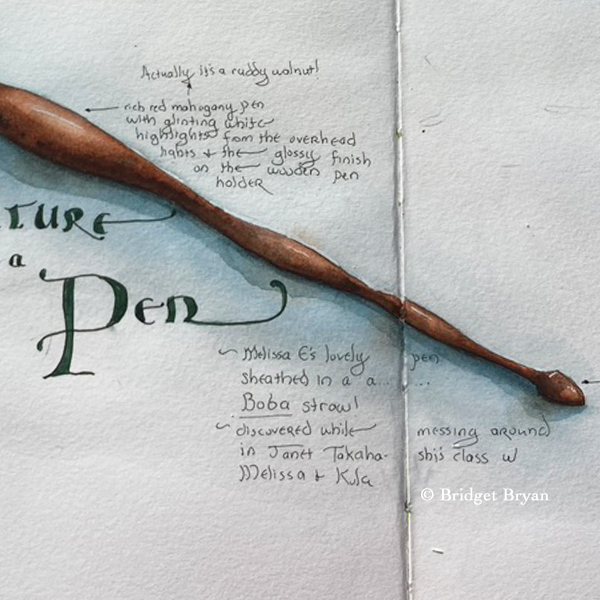 Actually it's a ruddy walnut!
rich red mahogany pen
with glinting white
highlights from the overhead
lights & the glossy finish
on the wooden pen
holder
TURE
a
Pen
~ Melissa E's lovely pen
sheathed in a a... ...
Boba straw!
~ discovered while messing around
in Janet Takaha- shi's class w
Melissa & Kula
© Bridget Bryan